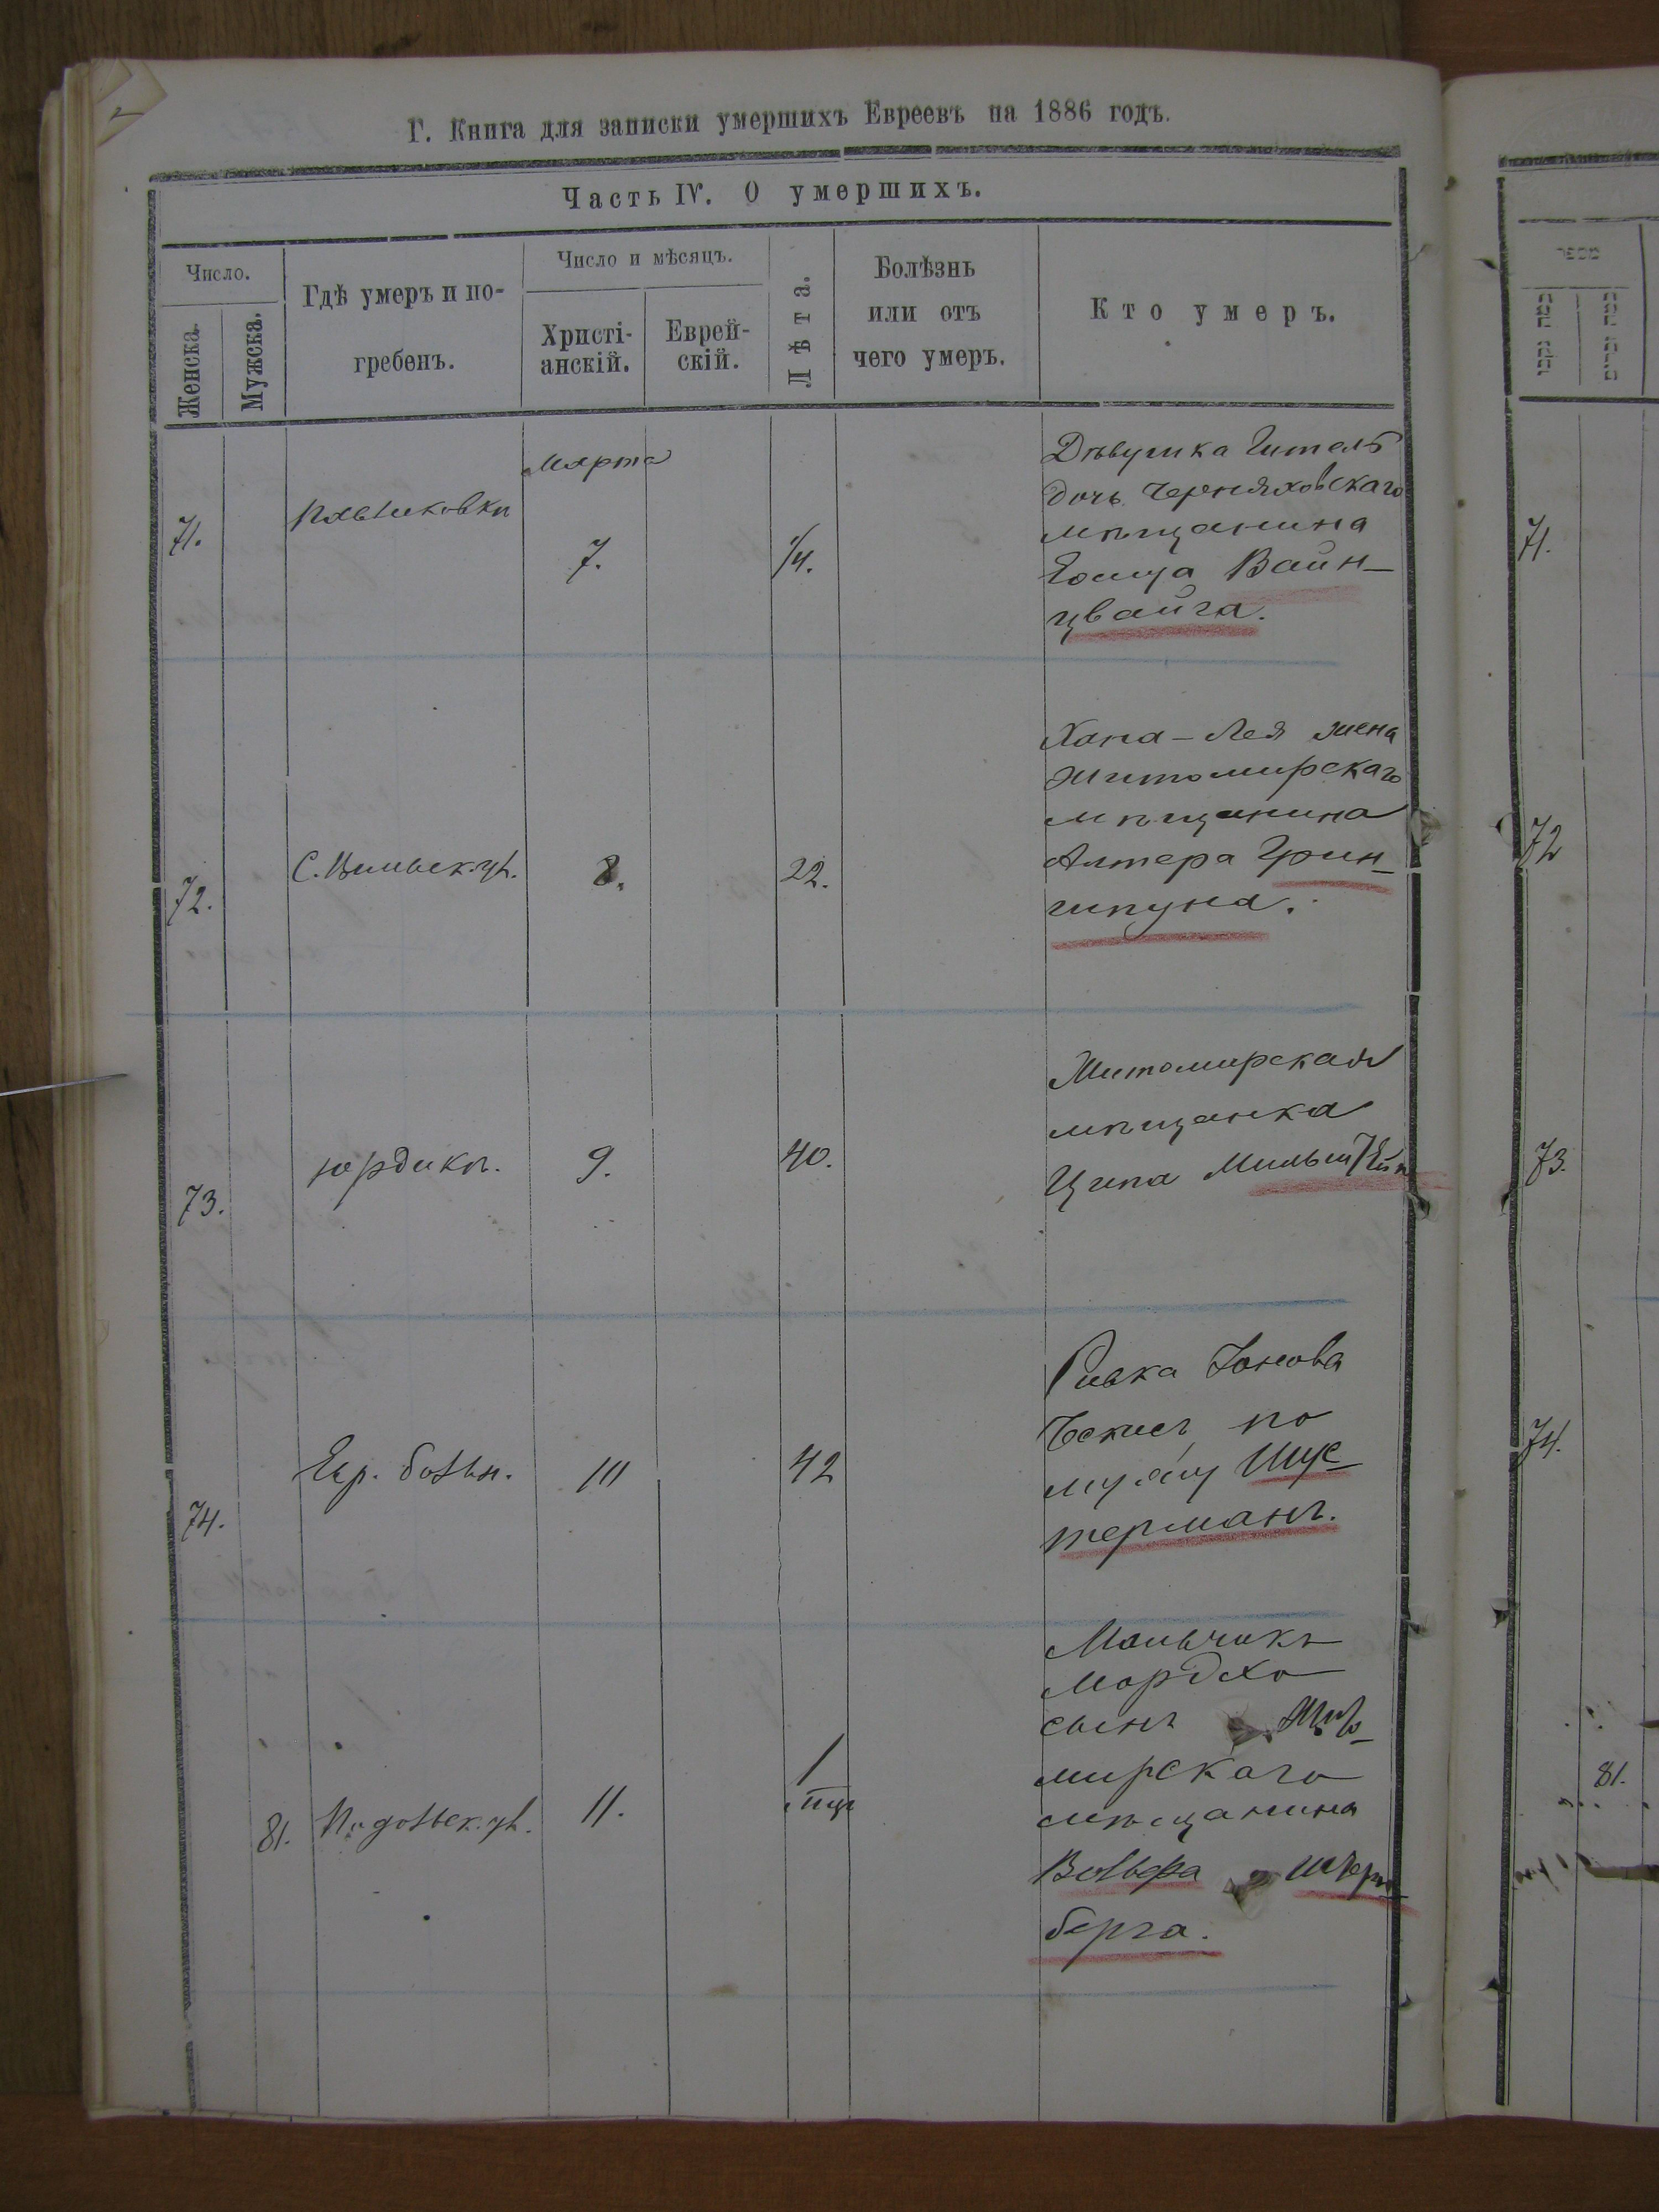 Г. Книга для записки умершихъ Евреевъ на 1886 годъ.
Часть IV. О умершихъ.
Число.
Женска.
Мужска.
Гдѣ умеръ и по-
гребенъ.
Число и мѣсяцъ.
Христі-
анскій.
Еврей-
скій.
Лѣта.
Болѣзнь
или отъ
чего умеръ.
Кто умеръ.
71.
Марта
7.
1/4.
Дѣвушка Гитель
дочь Черняховскаго
мѣщанина
Вайн-
цвайга.
72.
8.
22.
Хана-Лея жена
Житомирскаго
мѣщанина
Алтера Грин-
шпуна.
73.
юрдики.
9.
40.
Житомирская
мѣщанка
Ципа
74.
Евр. больн.
10
42
Ривка
по
мужу Шус-
терманъ.
81.
Подольск. ул.
11.
1
Мальчикъ
Мордхо
сынъ Жито-
мирскаго
мѣщанина
Вольфа Штерн-
берга.
מספר
71.
72
73.
74.
81.